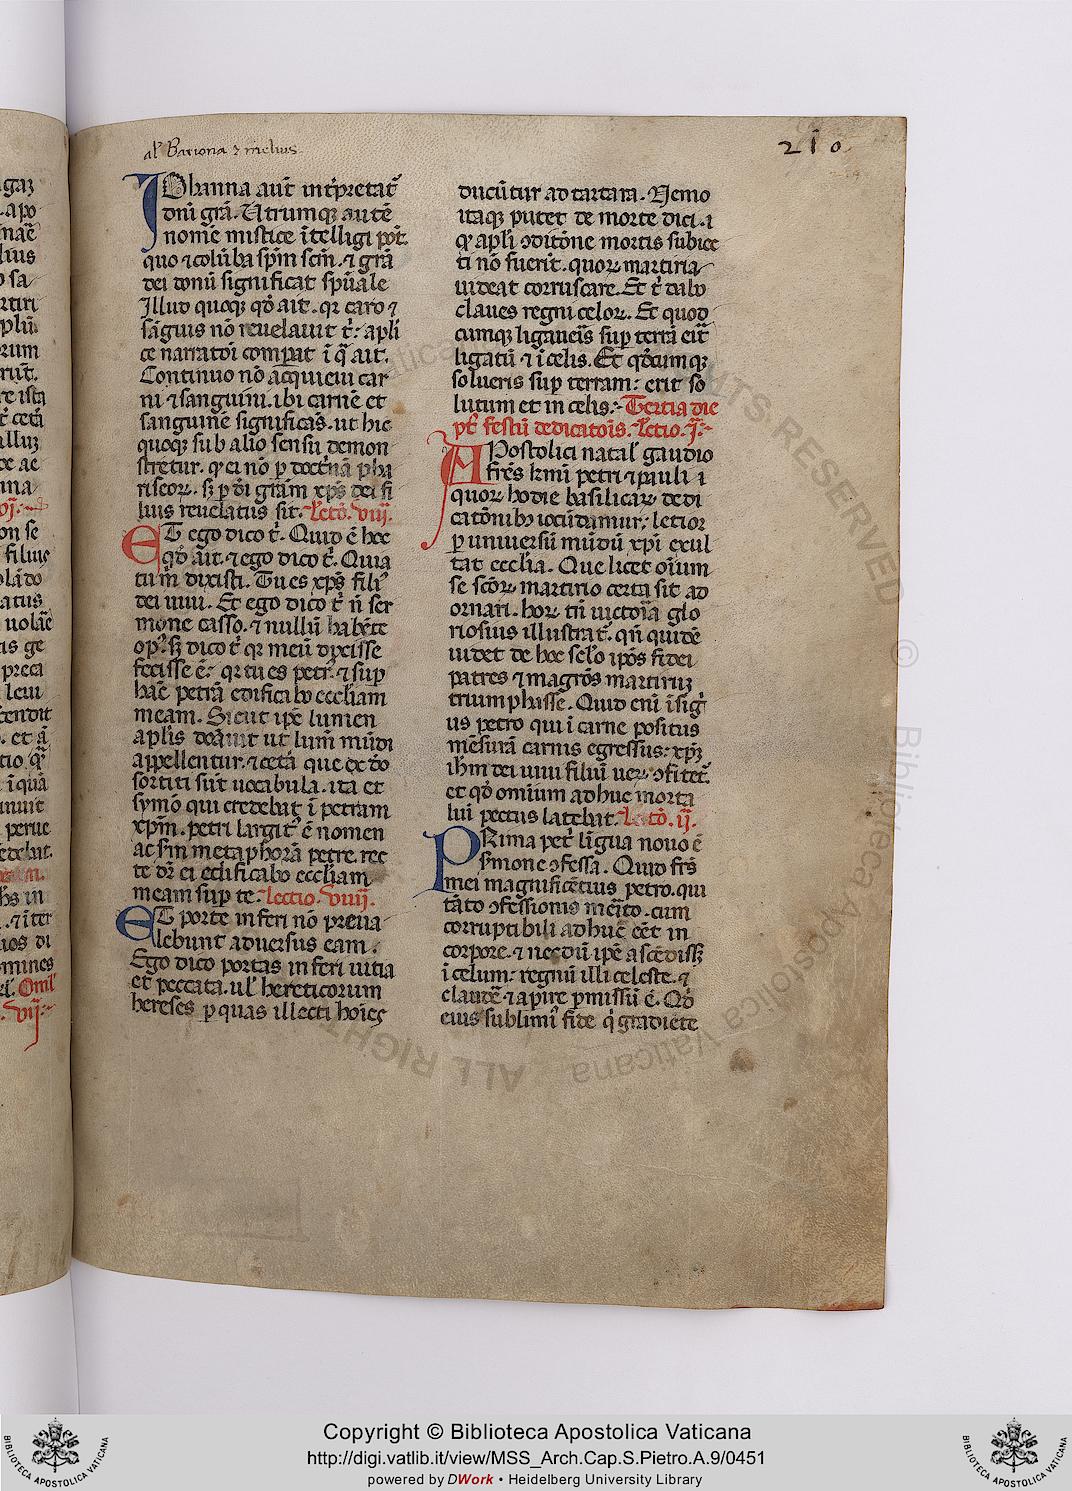 al' Bariona ⁊ melius
210
IOhanna aut̄ int̄pretat᷑
dn̄i gr̄a. Utrumqꝫ autē
nomē mistice ītelligi pōt.
quo ⁊ colūba sp̄m sc̄m. ⁊ gr̄a
dei donū significat spūale
Illud quoqꝫ qd̄ ait. qꝛ caro ⁊
sāguis nō reuelauit t̄: apl̄i
ce narratōi ꝯpat̄ ī q̄ ait.
Continuo nō acquieui car
ni ⁊ sanguini. ibi carnē et
sanguinē significās. ut hic
quoqꝫ sub alio sensu demon
stretur. qꝫ ei nō ꝑ doctrinā pha
riseoꝝ. sꝫ ꝑ dī grām xp̄s dei fi
lius reuelatus sit. Lectō. viij.
ET ego dico t̄. Quid ē hoc
qd̄ ait. ⁊ ego dico t̄. Quia
tu m̄ dixisti. Tu es xp̄s fili9
dei uiui. Et ego dico t̄ n̄ ser
mone casso. ⁊ nullū habēte
op9. sꝫ dico t̄ qꝛ meū dixisse
fecisse ē: qꝛ tu es petr9. ⁊ sup
hāc petrā edificabo eccl̄iam
meam. Sicut ip̄e lumen
apl̄is donauit ut lum̄ mūdi
appellentur. ⁊ cetā que ex dn̄o
sortiti sūt uocabula. ita et
symō qui credebat ī petram
xp̄m. petri largit9 ē nomen
ac sm̄ metaphorā petre. rec
te dr̄ ei edificabo eccl̄iam
meam suꝑ te. Lectio. viiij.
ET porte inferi nō preua
lebunt aduersus eam.
Ego dico portas inferi uitia
et peccata. ul' hereticorum
hereses ꝑ quas illecti hoīes
ducūtur ad tartara. Nemo
itaqꝫ putet de morte dici. ī
qꝫ apl̄i ꝯditōne mortis subiec
ti nō fuerīt. quoꝝ martiria
uideat corruscare. Et t̄ dabo
claues regni celoꝝ. Et quod
cumqꝫ ligaueris suꝑ terrā erit
ligatū ⁊ ī celis. Et qd̄cumqꝫ
solueris suꝑ terram: erit so
lutum et in celis. Tertia die
pt̄ festū dedicatōis. Lectio. j.
APostolici natal' gaudio
fr̄es kmi petri ⁊ pauli ī
quoꝝ hodie basilicaꝝ dedi
catōnibꝫ iocūdamur: letior
ꝑ uniuersū mūdū xp̄i exul
tat eccl̄ia. Que licet oīum
se sc̄oꝝ martirio certa sit ad
ornari. hoꝝ tn̄ uictoīa glo
riosius illustrat᷑. qn̄ quidē
uidet de hoc sclo ip̄os fidei
patres ⁊ magr̄os martirūꝫ
triumphasse. Quid eni īsig
us petro qui ī carne positus
mēsurā carnis egressus: xp̄ꝫ
ih̄m dei uiui filiū ueꝝ ꝯfitet᷑.
et qd̄ omium adhuc morta
liū pectus latebat. Lectō. ij.
PRima pet̄ līgua nouo ē
s̄mone ꝯfessa. Quid fr̄s
mei magnificētius petro. qui
tāto ꝯfessionis mēito. cum
corruptibili adhuc eēt in
corpore. ⁊ necdū ip̄e ascēdissꝫ
ī celum: regnū illi celeste. ⁊
claudē ⁊ apire ꝑmissū ē. Qd̄
eius sublimi fide q̄ gradiēte
Copyright © Biblioteca Apostolica Vaticana
http://digi.vatlib.it/view/MSS_Arch.Cap.S.Pietro.A.9/0451
powered by DWork • Heidelberg University Library